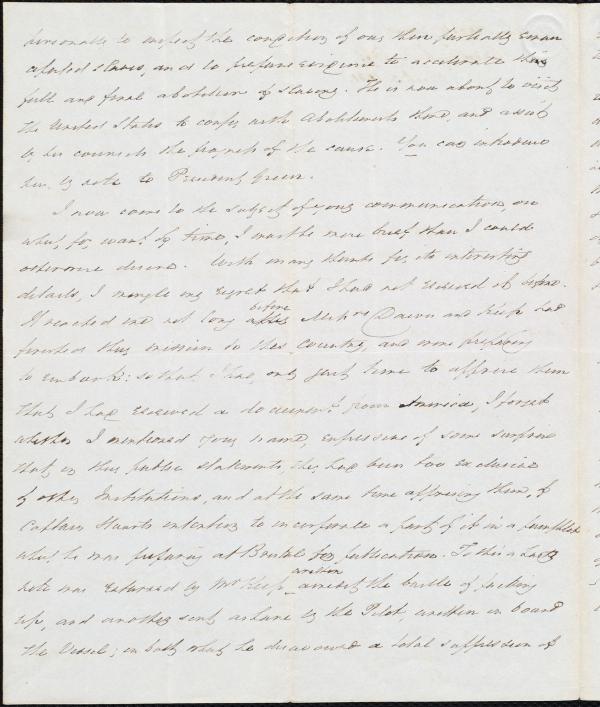 personally to inspect the condition of our then partially eman
cipated slaves, and to prepare evidence to accelerate their
full and final abolition of slavery. He is now about to visit
the United States to confer with Abolitionists there, and assist
by his counsels the progress of the cause. You can introduce
him by note to President Green.
I now come to the subject of your communication, on
which, for want of time, I must be more brief than I could
otherwise desire. With many thanks for its interesting
details, I mingle my regret that I had not received it before.
It reached me not long before Messrs Dawes and Keep had
finished their mission to this Country, and were preparing
to embark: so that I had only just time to apprise them
that I had received a document from America, I forget
whether I mentioned your name, expressive of some surprise
that in their public statements, they had been too exclusive
of other Institutions, and at the same time apprising them, of
Captain Stuarts intention to incorporate a part of it in a pamphlet
which he was preparing at Bristol for publication. To this a hasty
note was returned by Mr Keep written amidst the bustle of packing
up, and another sent ashore by the Pilot, written on board
the Vessel; in both which he disavowed a total suppression of